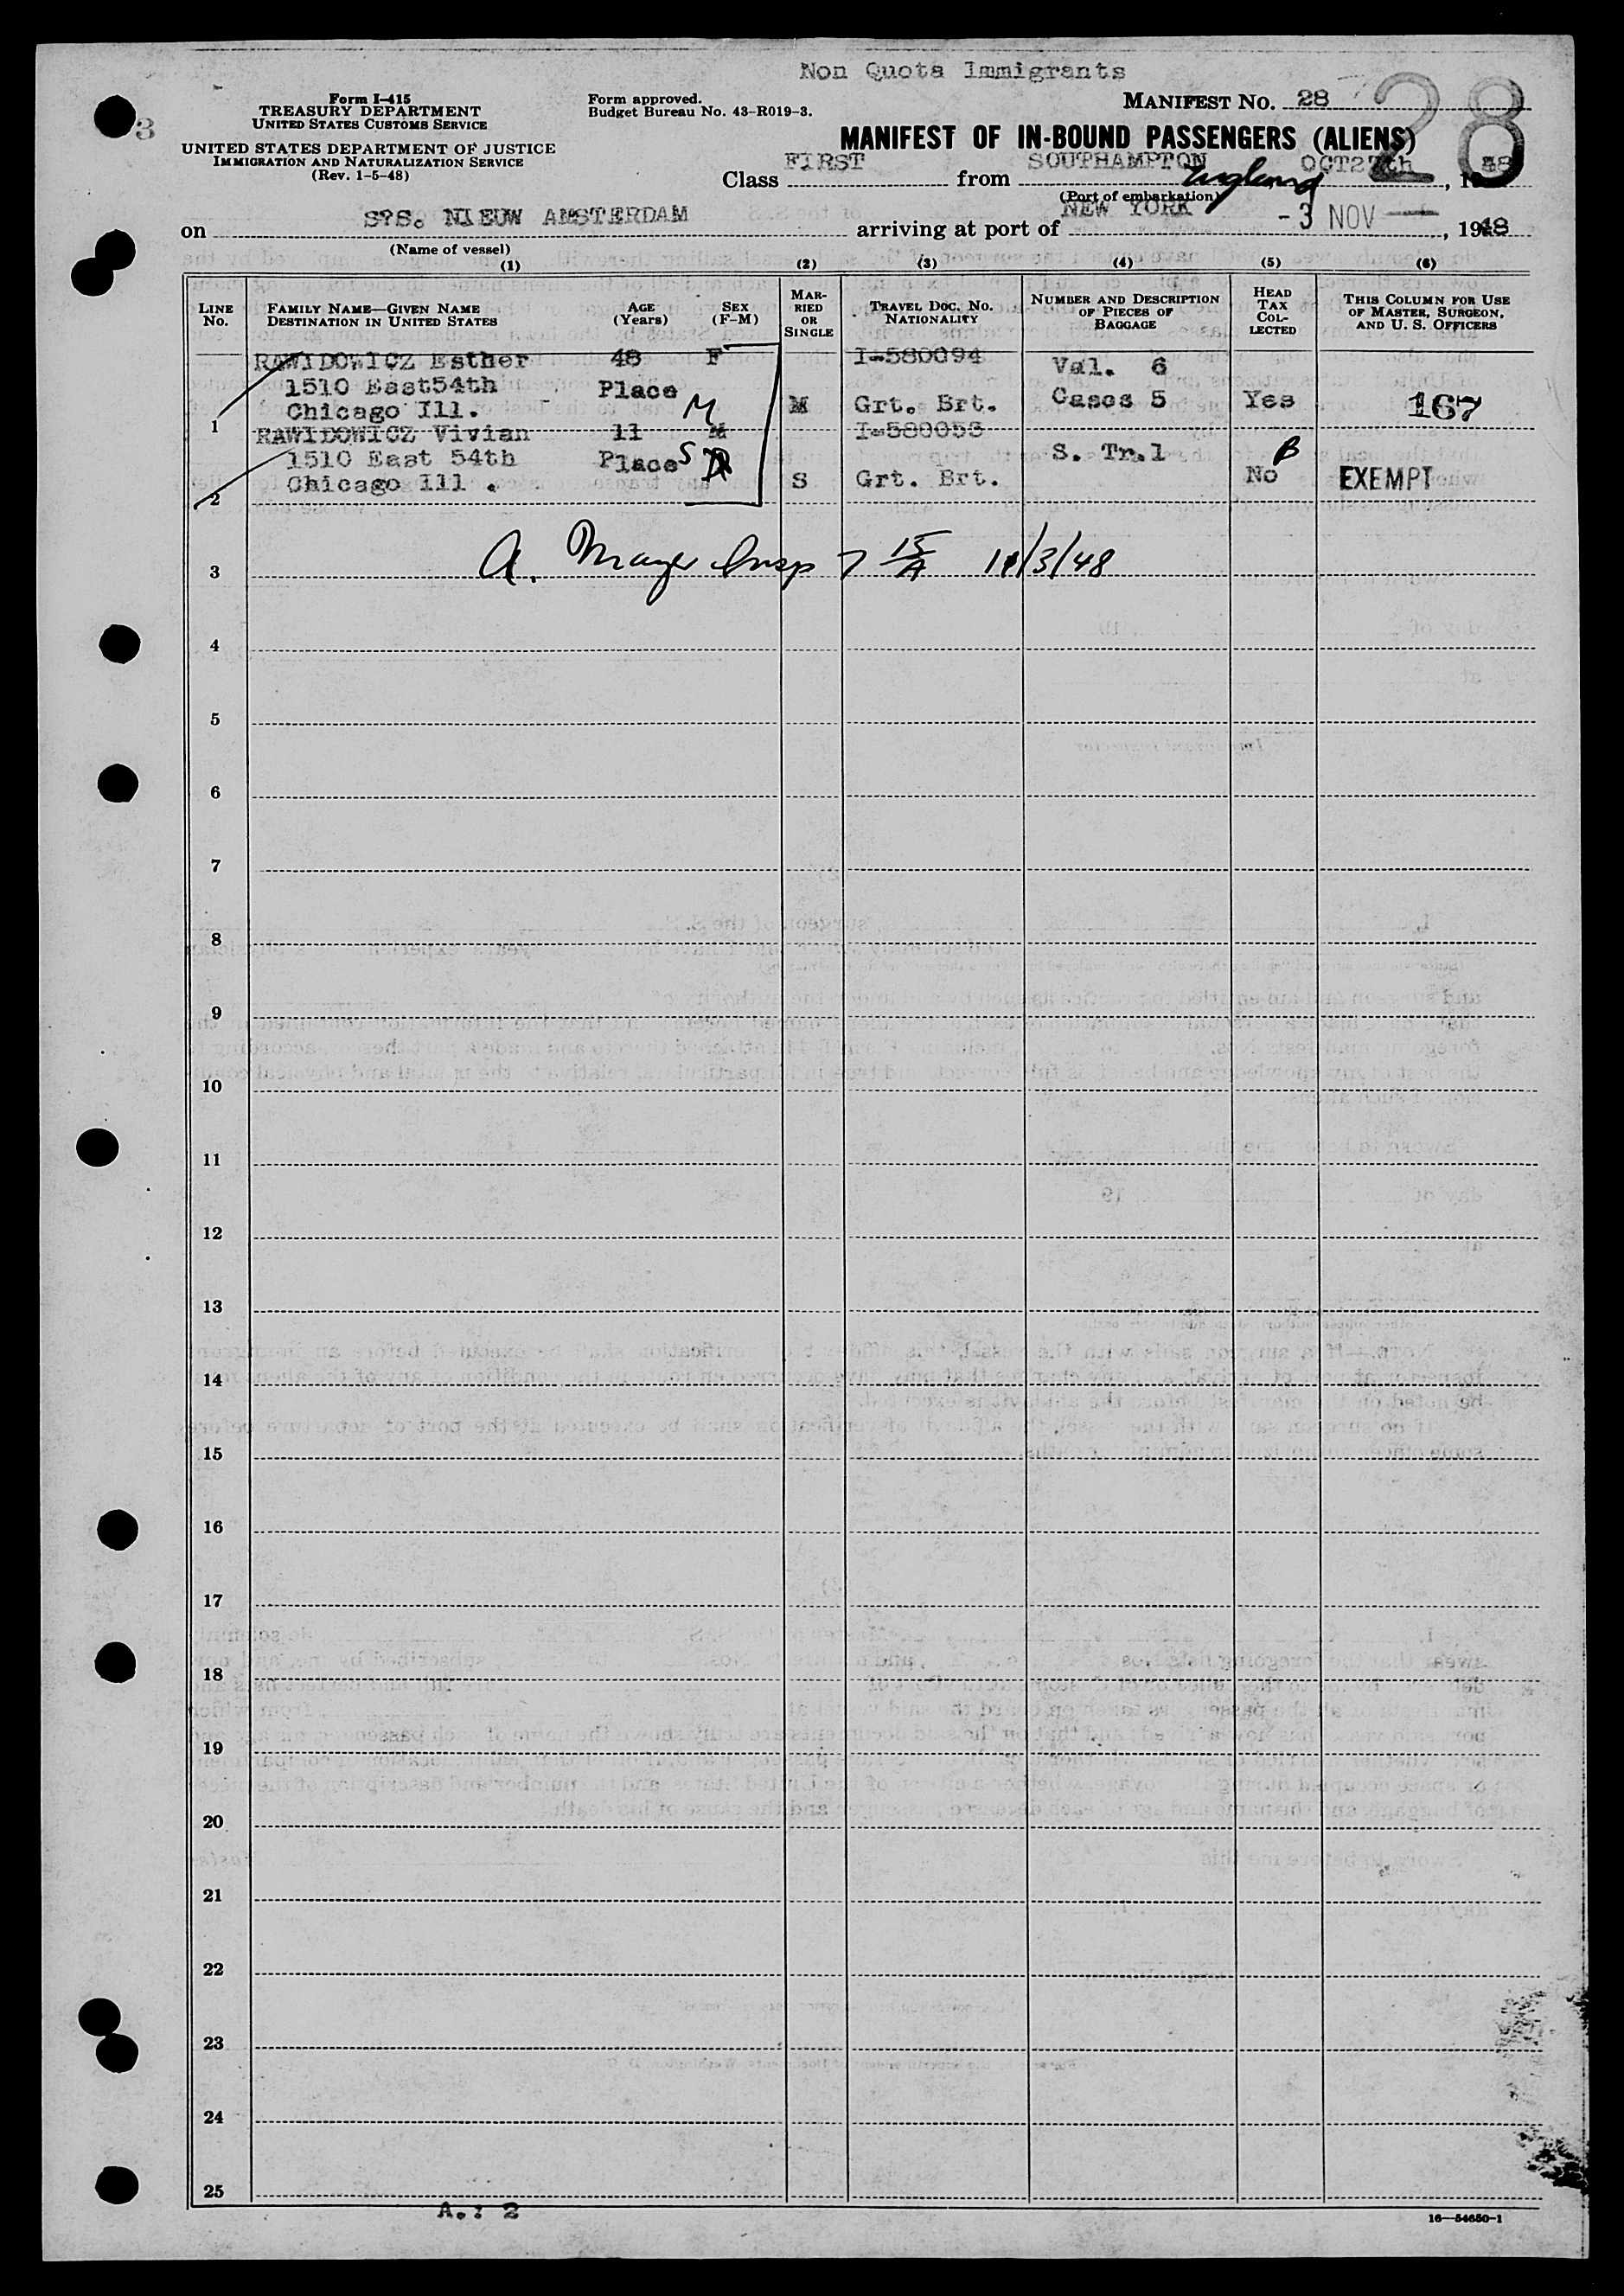 Non Quota Immigrants
28
3
Form I-415
TREASURY DEPARTMENT
UNITED STATES CUSTOMS SERVICE
UNITED STATES DEPARTMENT OF JUSTICE
IMMIGRATION AND NATURALIZATION SERVICE
(Rev. 1-5-48)
Form approved.
Budget Bureau No. 43-R019-3.
MANIFEST NO. 28
MANIFEST OF IN-BOUND PASSENGERS (ALIENS)
Class FIRST from SOUTHAMPTON England OCT27th, 1948
(Port of embarkation)
on S?S. NIEUW AMSTERDAM arriving at port of NEW YORK -3 NOV, 1948
(Name of vessel)
(1) (2) (3) (4) (5) (6)
LINE No.
FAMILY NAME—GIVEN NAME
DESTINATION IN UNITED STATES
AGE (Years)
SEX (F-M)
MARRIED OR SINGLE
TRAVEL DOC. NO.
NATIONALITY
NUMBER AND DESCRIPTION OF PIECES OF BAGGAGE
HEAD TAX COLLECTED
THIS COLUMN FOR USE OF MASTER, SURGEON, AND U. S. OFFICERS
RAWIDOWICZ Esther 48 F I-580094 Val. 6
1510 East54th Place
1 Chicago Ill. M M Grt. Brt. Cases 5 Yes 167
RAWIDOWICZ Vivian 11 M
1510 East 54th Place S S. Tr.1 B
2 Chicago ill . S Grt. Brt. No EXEMPT
3 A. Mayer Insp 7 15/A 11/3/48
4
5
6
7
8
9
10
11
12
13
14
15
16
17
18
19
20
21
22
23
24
25
A.: 2
16—54650-1